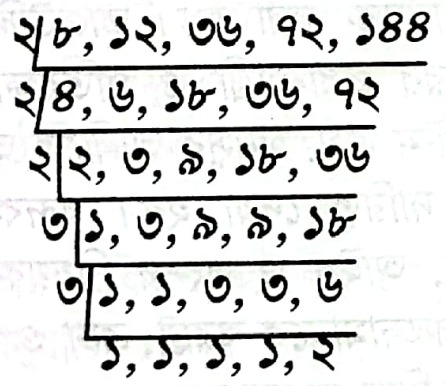 ২ ৮, ১২, ৩৬, ৭২, ১৪৪
২ ৪, ৬, ১৮, ৩৬, ৭২
২ ২, ৩, ৯, ১৮, ৩৬
৩ ১, ৩, ৯, ৯, ১৮
৩ ১, ১, ৩, ৩, ৬
১, ১, ১, ১, ২